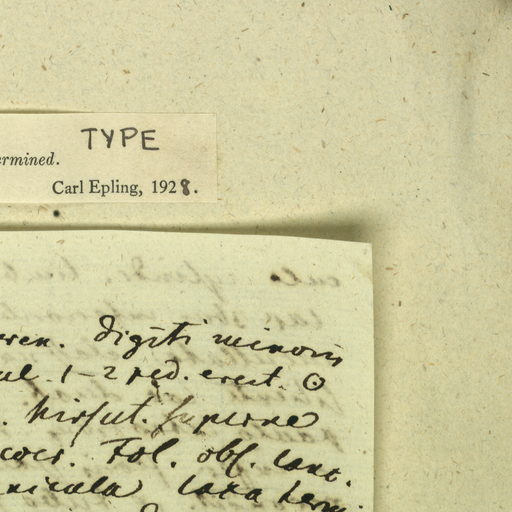 TYPE
ermined.
Carl Epling, 1928.
digiti minoris
1-2 ped. erect. ⊙
hirsut. superne
Fol. obl. lanc.
laxa term.